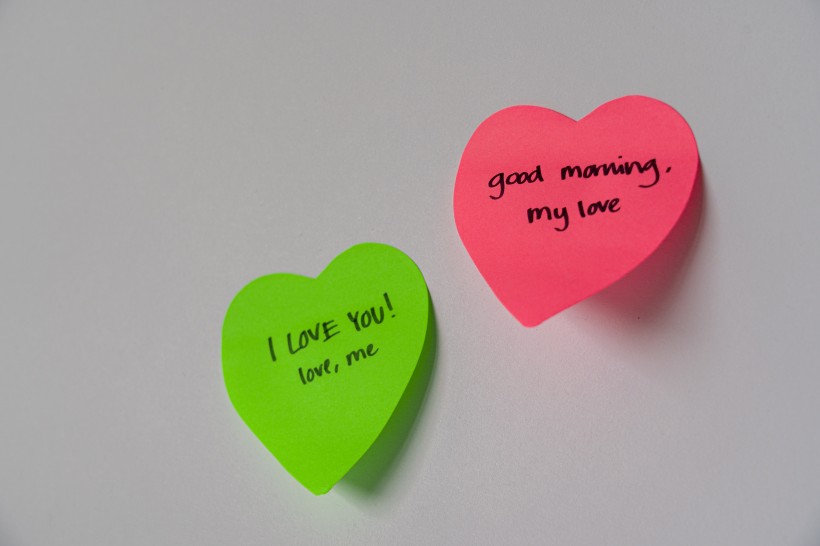 good morning,
my love
I LOVE YOU!
love, me